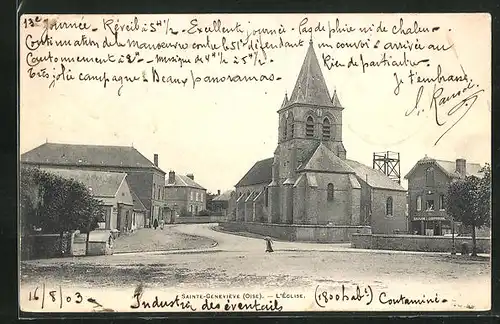 13e Journée - Réveil à 5h½ - Excellent journée - Pas de pluie ni de chaleur
Continuation de la manœuvre contre le 51e défendant un convoi. arrivée au
Cantonnement à 2h - musique de 4h½ à 5h½ Rien de particulier -
Très jolie campagne & Beaux panoramas -
Je t'embrasse
SAINTE-GENEVIÈVE (OISE). - L'ÉGLISE.
16/8/03 - Industrie des éventails (1800 hab ts) Contaminé -